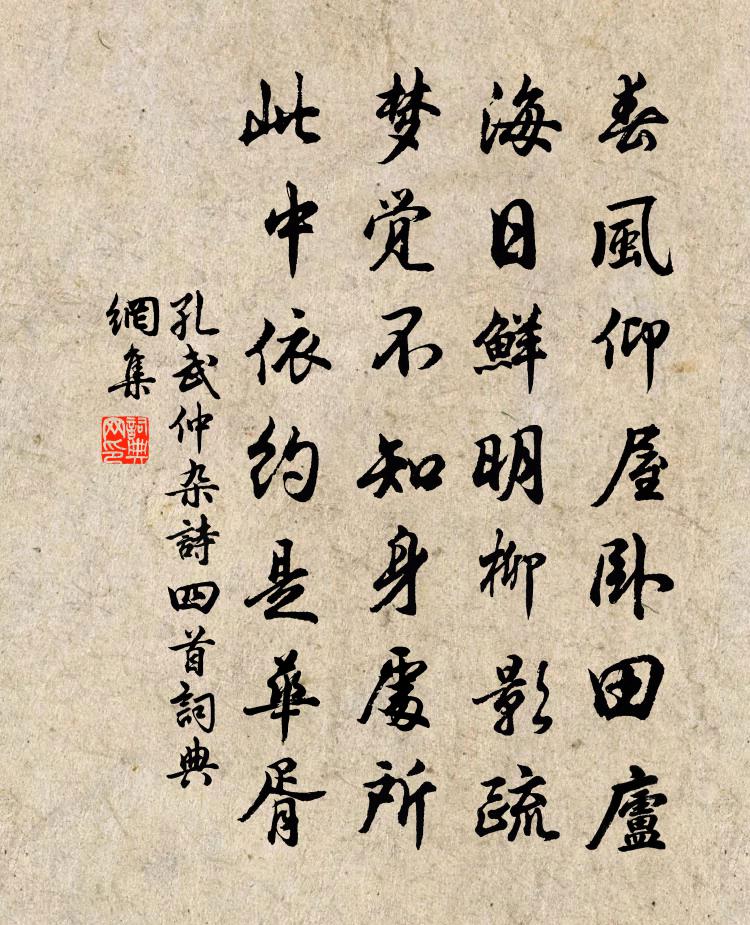 春風仰屋卧田廬
海日鮮明柳影疏
梦觉不知身處所
此中依约是華胥
孔武仲杂詩四首詞典
網集
詞典
网印